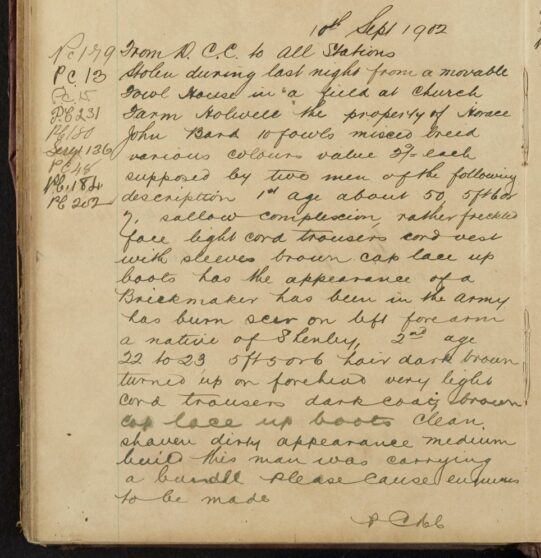 10th Sept 1902
From D. C. C. to All Stations
Stolen during last night from a movable
Fowl House in a field at Church
Farm Holwell the property of Horace
John Bard 10 fowls misced breed
various colours value 2/- each
supposed by two men of the following
description 1st age about 50, 5ft 6 or
7, sallow complexion, rather freckled
face light cord trousers cord vest
with sleeves brown cap lace up
boots has the appearance of a
Brickmaker has been in the army
has burn scar on left forearm
a native of Shenley, 2nd age
22 to 23 5ft 5 or 6 hair dark brown
turned up on forehead very light
cord trousers dark coat, brown
cap lace up boots clean
shaven dirty appearance medium
build this man was carrying
a bundle Please cause enquiries
to be made
PC 179
PC. 13
PC. 15
PC 231
PC 180
Sergt 136
PC 48
PC. 184
PC 202